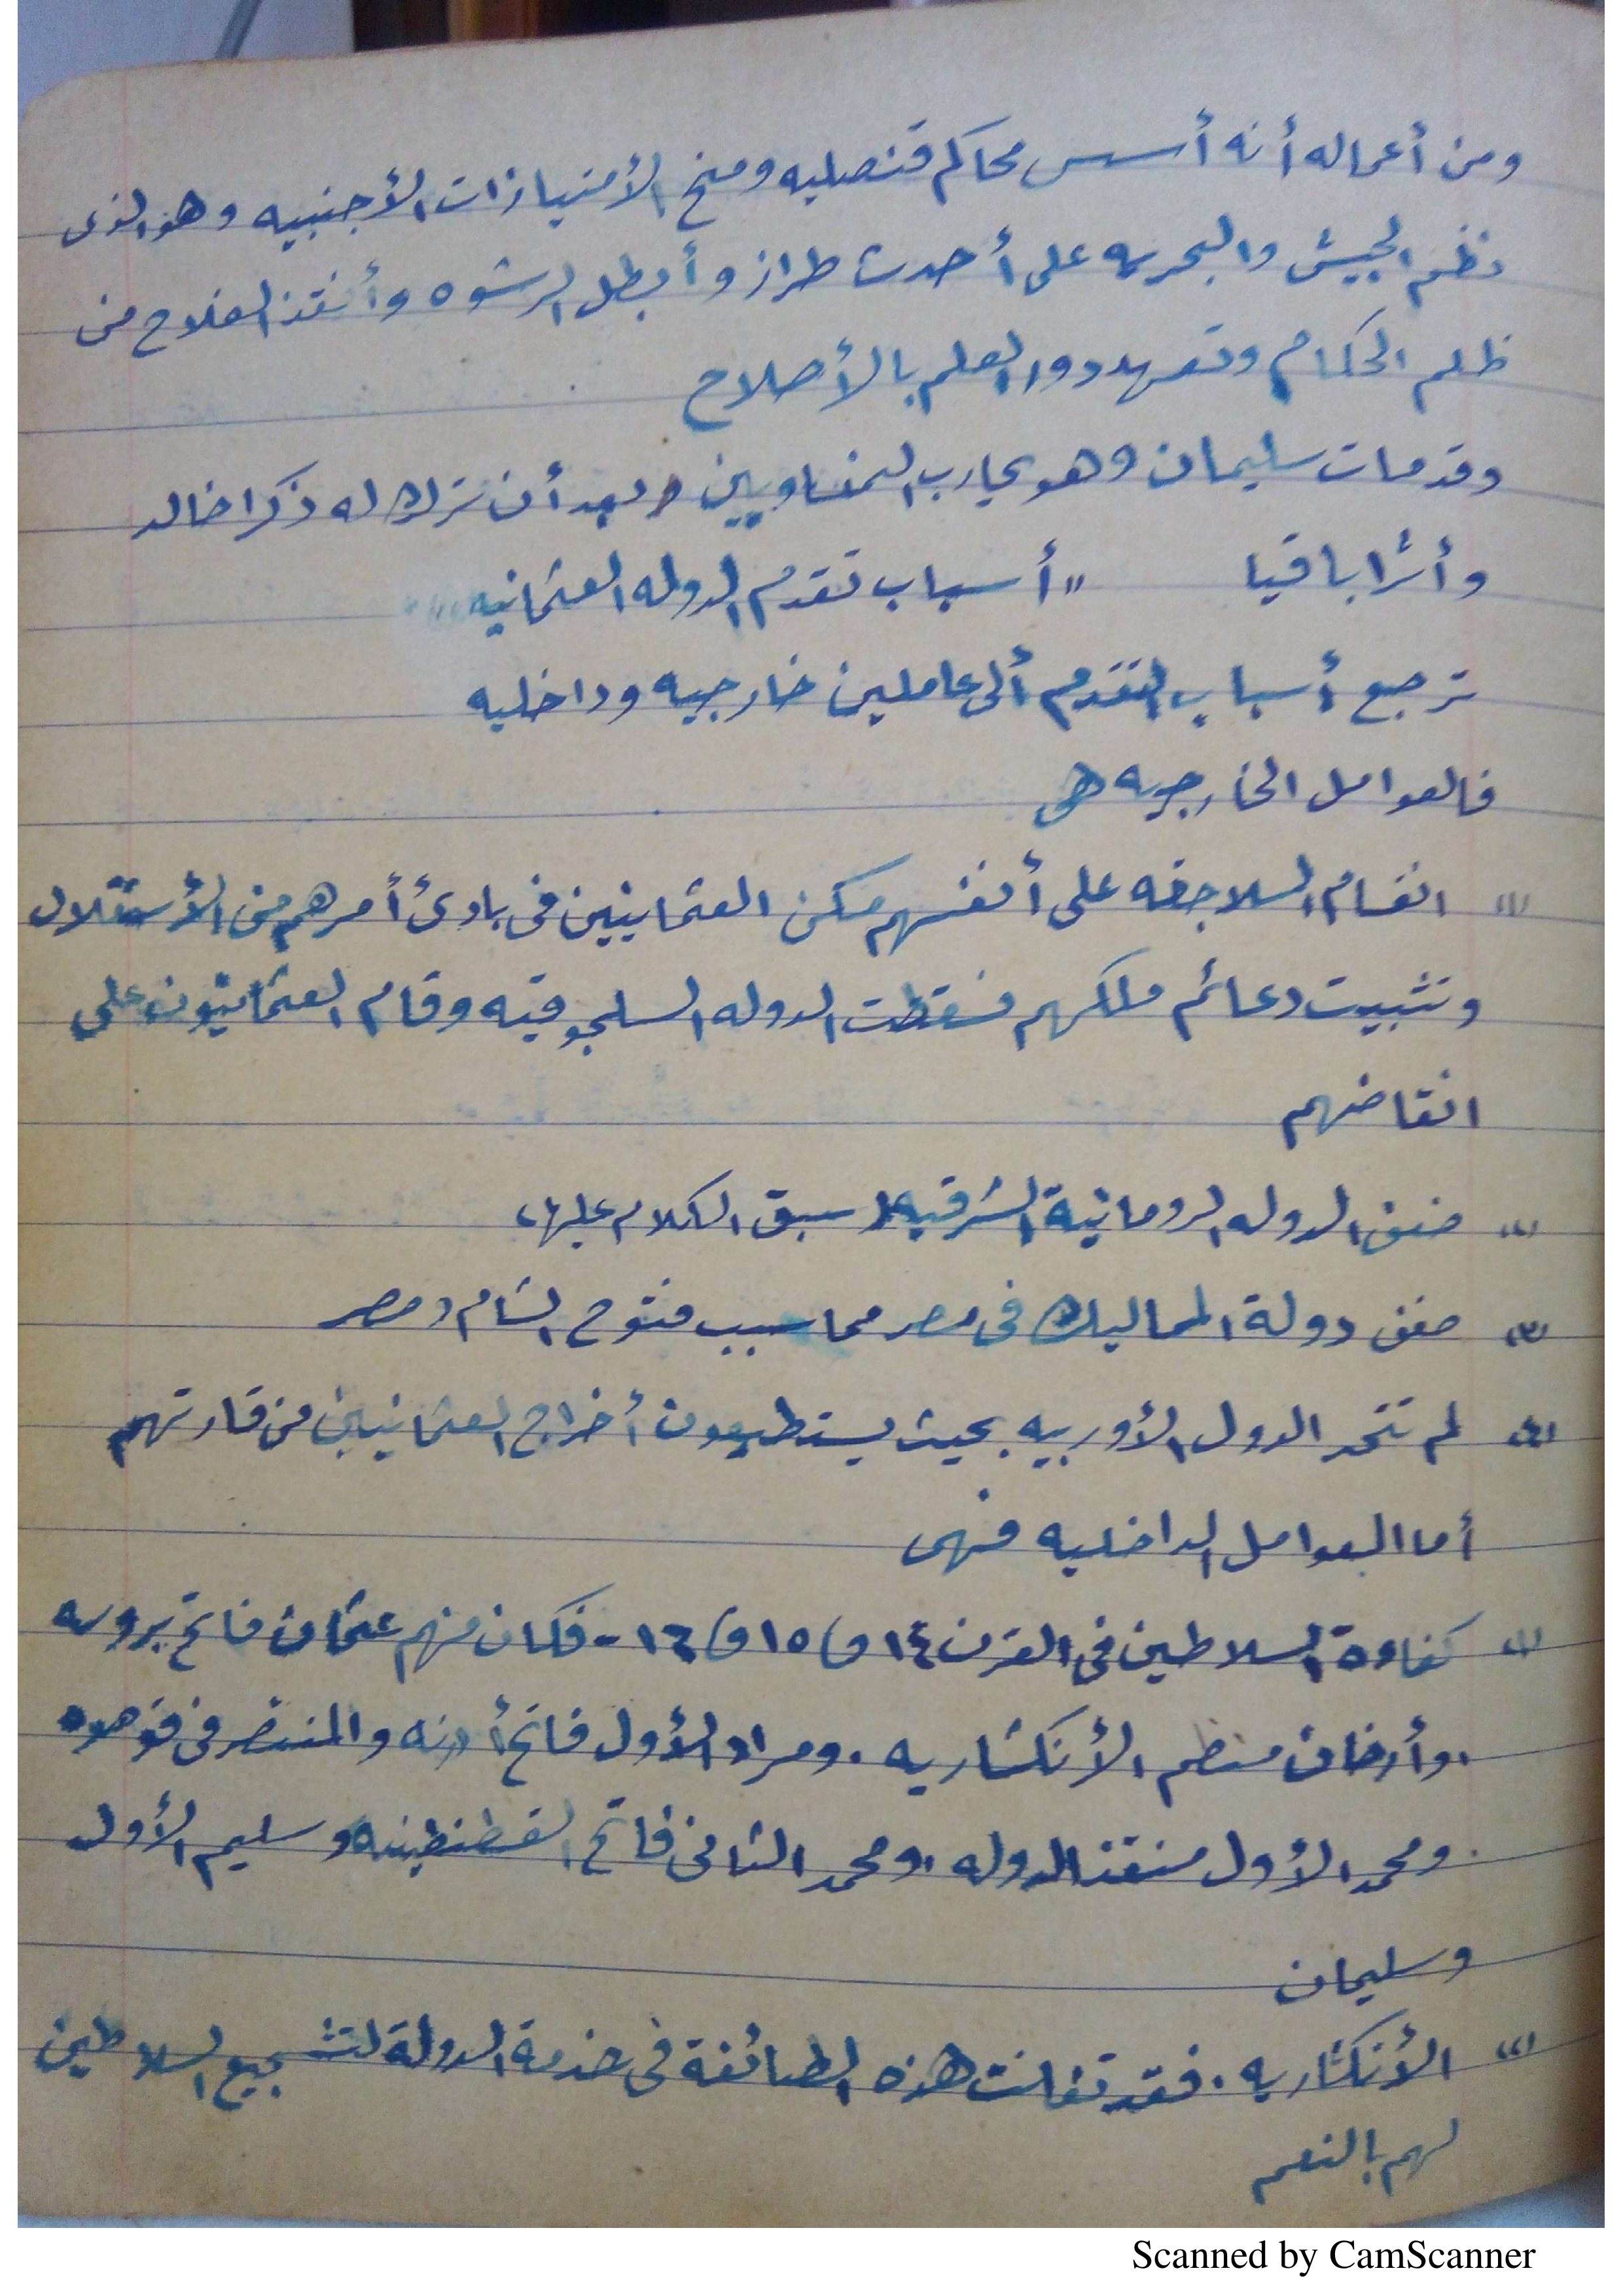 ومن أعماله أنه أسس محاكم قنصليه ومنح الأمتيازات الأجنبيه وهو الذى
نظم الجيش والبحريه على أحدث طراز وأبطل الرشوه وأنقذ الفلاح من
ظلم الحكام وتعهد دور العلم بالأصلاح
وقد مات سليمان وهو يحارب النمساويين وبعد أن ترك له ذكرا خالد
وأثرا باقيا " أسباب تقدم الدوله العثمانيه "
ترجع أسباب التقدم ألى عاملين خارجيه وداخليه
فالعوامل الخارجيه هى
(١) انقسام السلاجقه على أنفسهم مكن العثمانيين فى بادئ أمرهم من الأستقلال
وتثبيت دعائم ملكهم فسقطت الدوله السلجوقيه وقام العثمانيون على
انقاضهم
(٢) ضعف الدوله الرومانية الشرقيه ( سبق الكلام عليها )
(٣) ضعف دولة المماليك فى مصر مما سبب فتوح الشام ومصر
(٤) لم تتحد الدول الأوربيه بحيث يستطيعون أخراج العثمانيين من قارتهم
أما العوامل الداخليه فهى
(١) كفاءة السلاطين فى القرن ١٤ و ١٥ و ١٦ - فكان منهم عثمان فاتح بروسه
. وأرخان منظم الأنكشاريه . ومراد الأول فاتح أدرنه والمنتصر فى قوصوه
. ومحمد الأول منقذ الدوله . ومحمد الثانى فاتح القسطنطينيه وسليم الأول
وسليمان
(٢) الأنكشاريه . فقد تفانت هذه الطائفة فى خدمة الدولة لتشجيع السلاطين
لهم بالنعم
Scanned by CamScanner